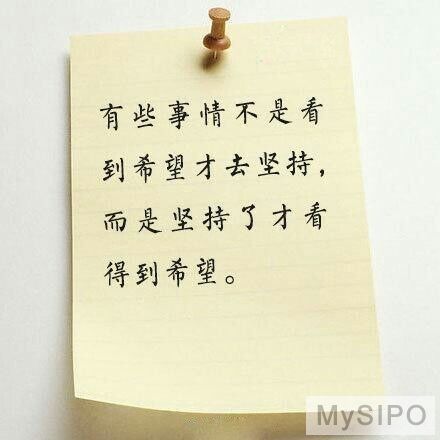 有些事情不是看
到希望才去坚持，
而是坚持了才看
得到希望。
MySIPO